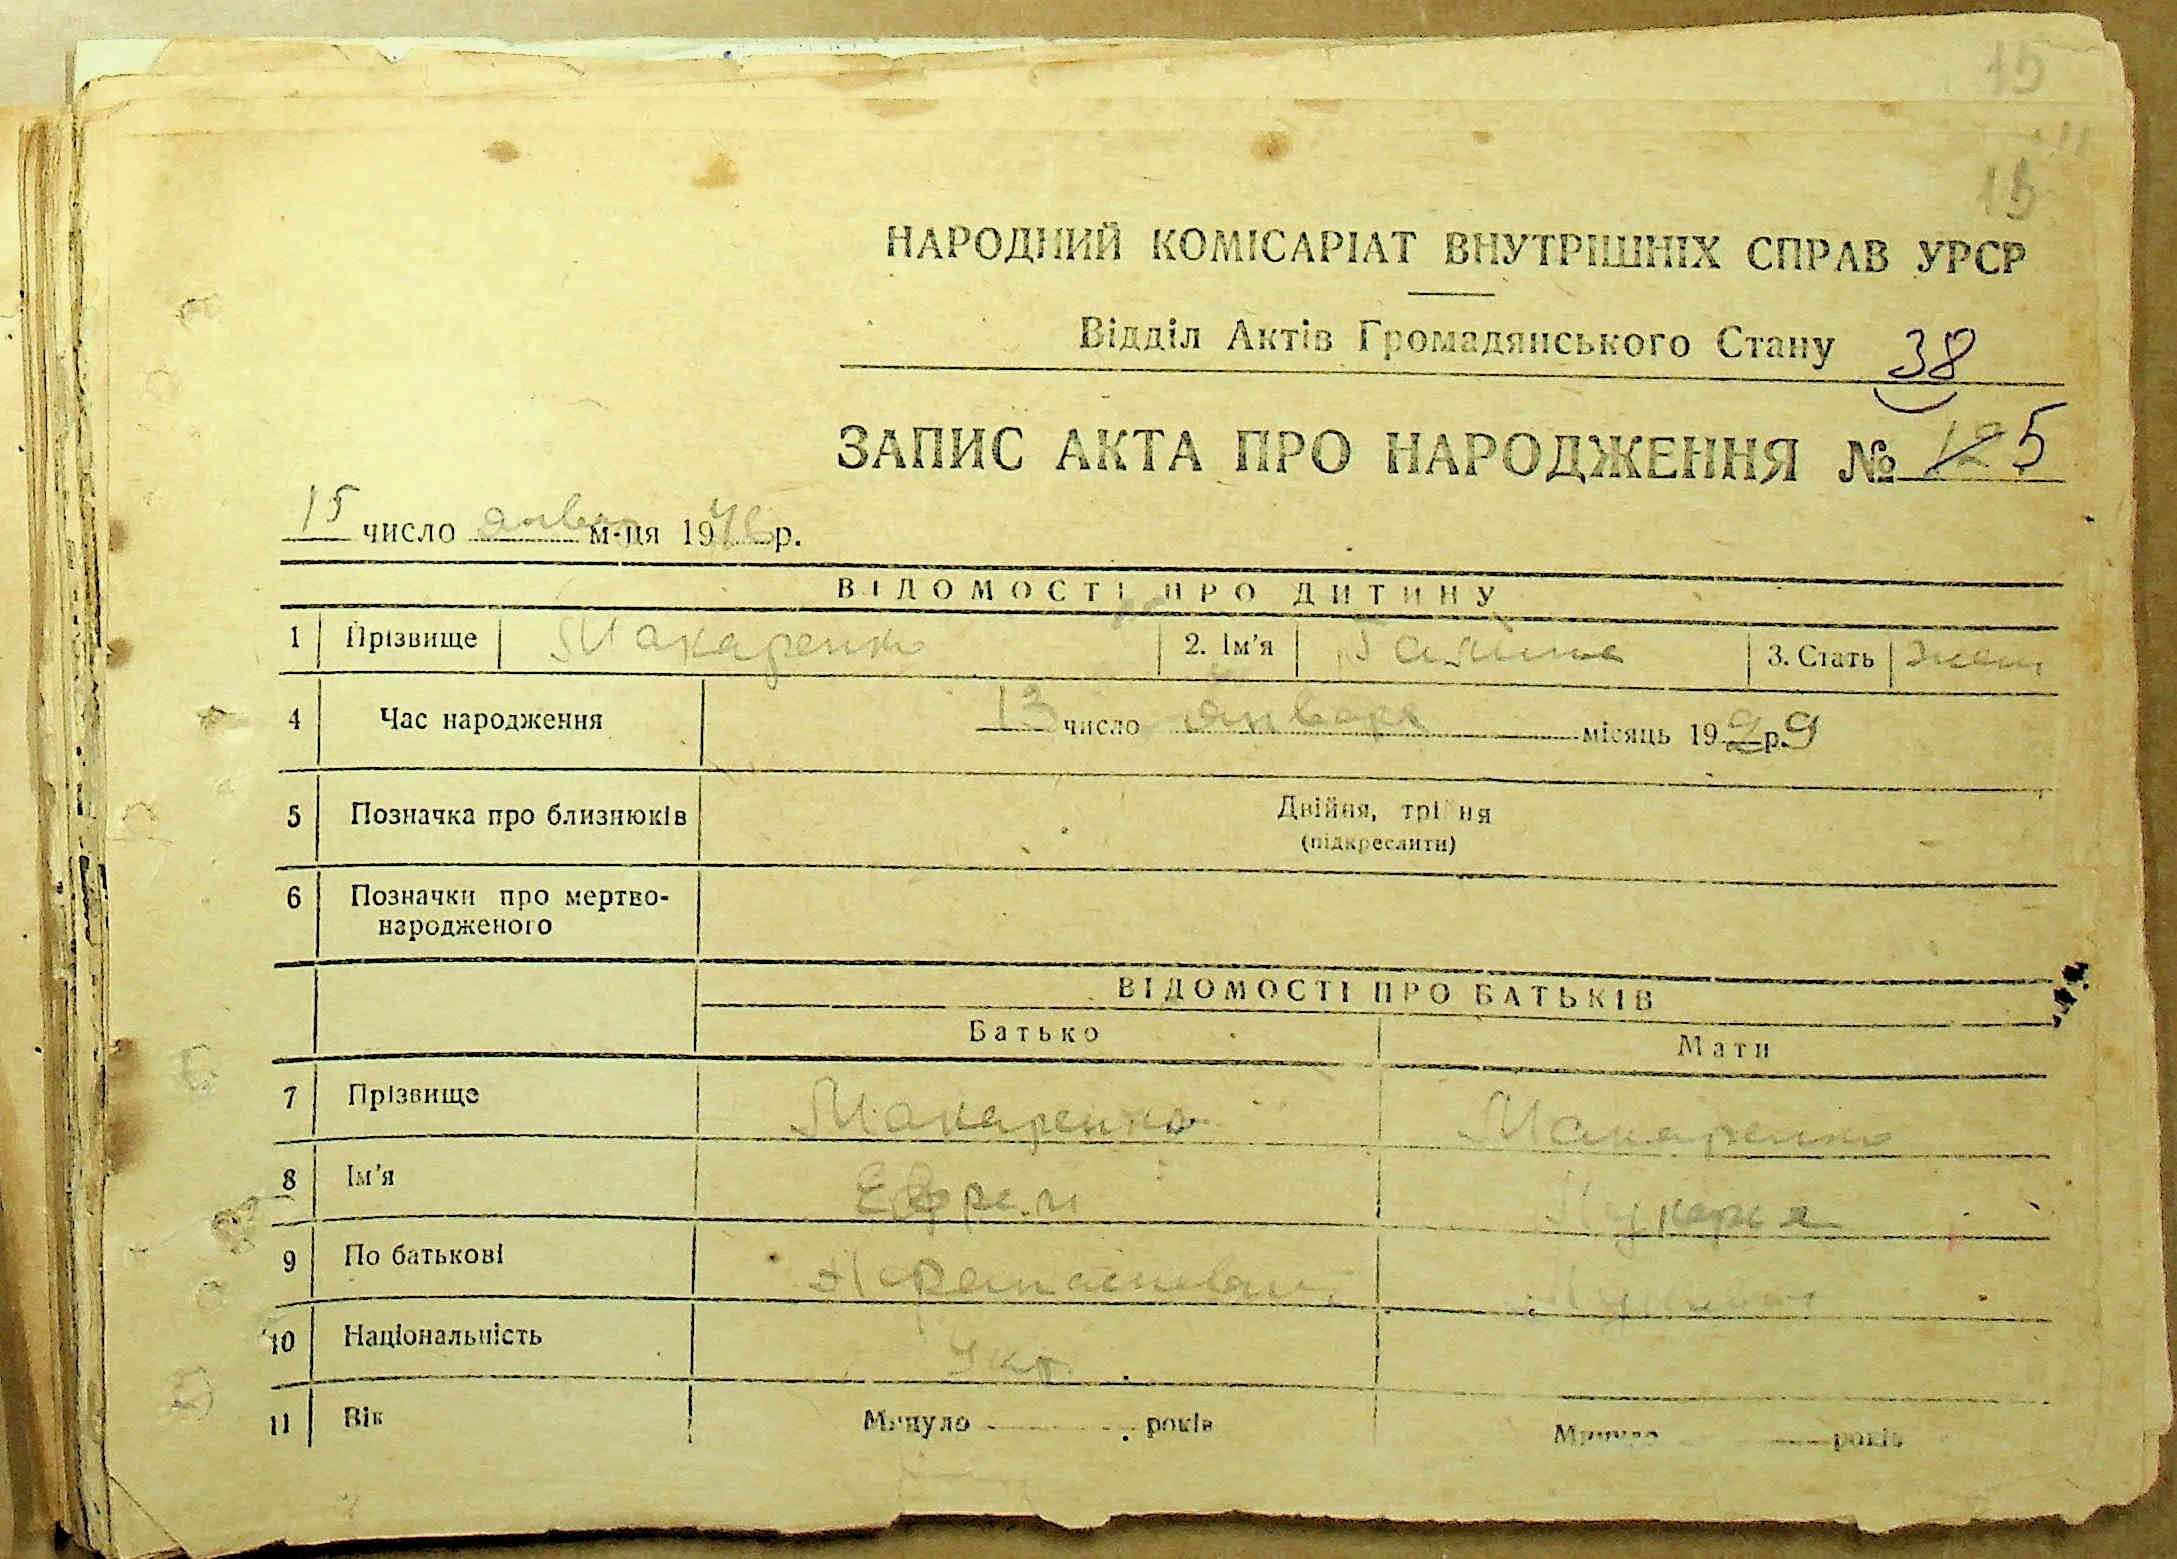 15
15
НАРОДНИЙ КОМІСАРІАТ ВНУТРІШНІХ СПРАВ УРСР
Відділ Актів Громадянського Стану 38
ЗАПИС АКТА ПРО НАРОДЖЕННЯ № 12 5
15 число январ м-ця 19 р.
ВІДОМОСТІ ПРО ДИТИНУ
1 Прізвище Макаренко 2. Ім'я Галина 3. Стать жен
4 Час народження 13 число января місяць 19 р.
5 Позначка про близнюків Двійня, трійня
(підкреслити)
6 Позначки про мертво-
народженого
ВІДОМОСТІ ПРО БАТЬКІВ
Батько Мати
7 Прізвище Макаренко Макаренко
8 Ім'я Ефрем
9 По батькові
10 Національність Укр.
11 Вік Минуло років Минуло років